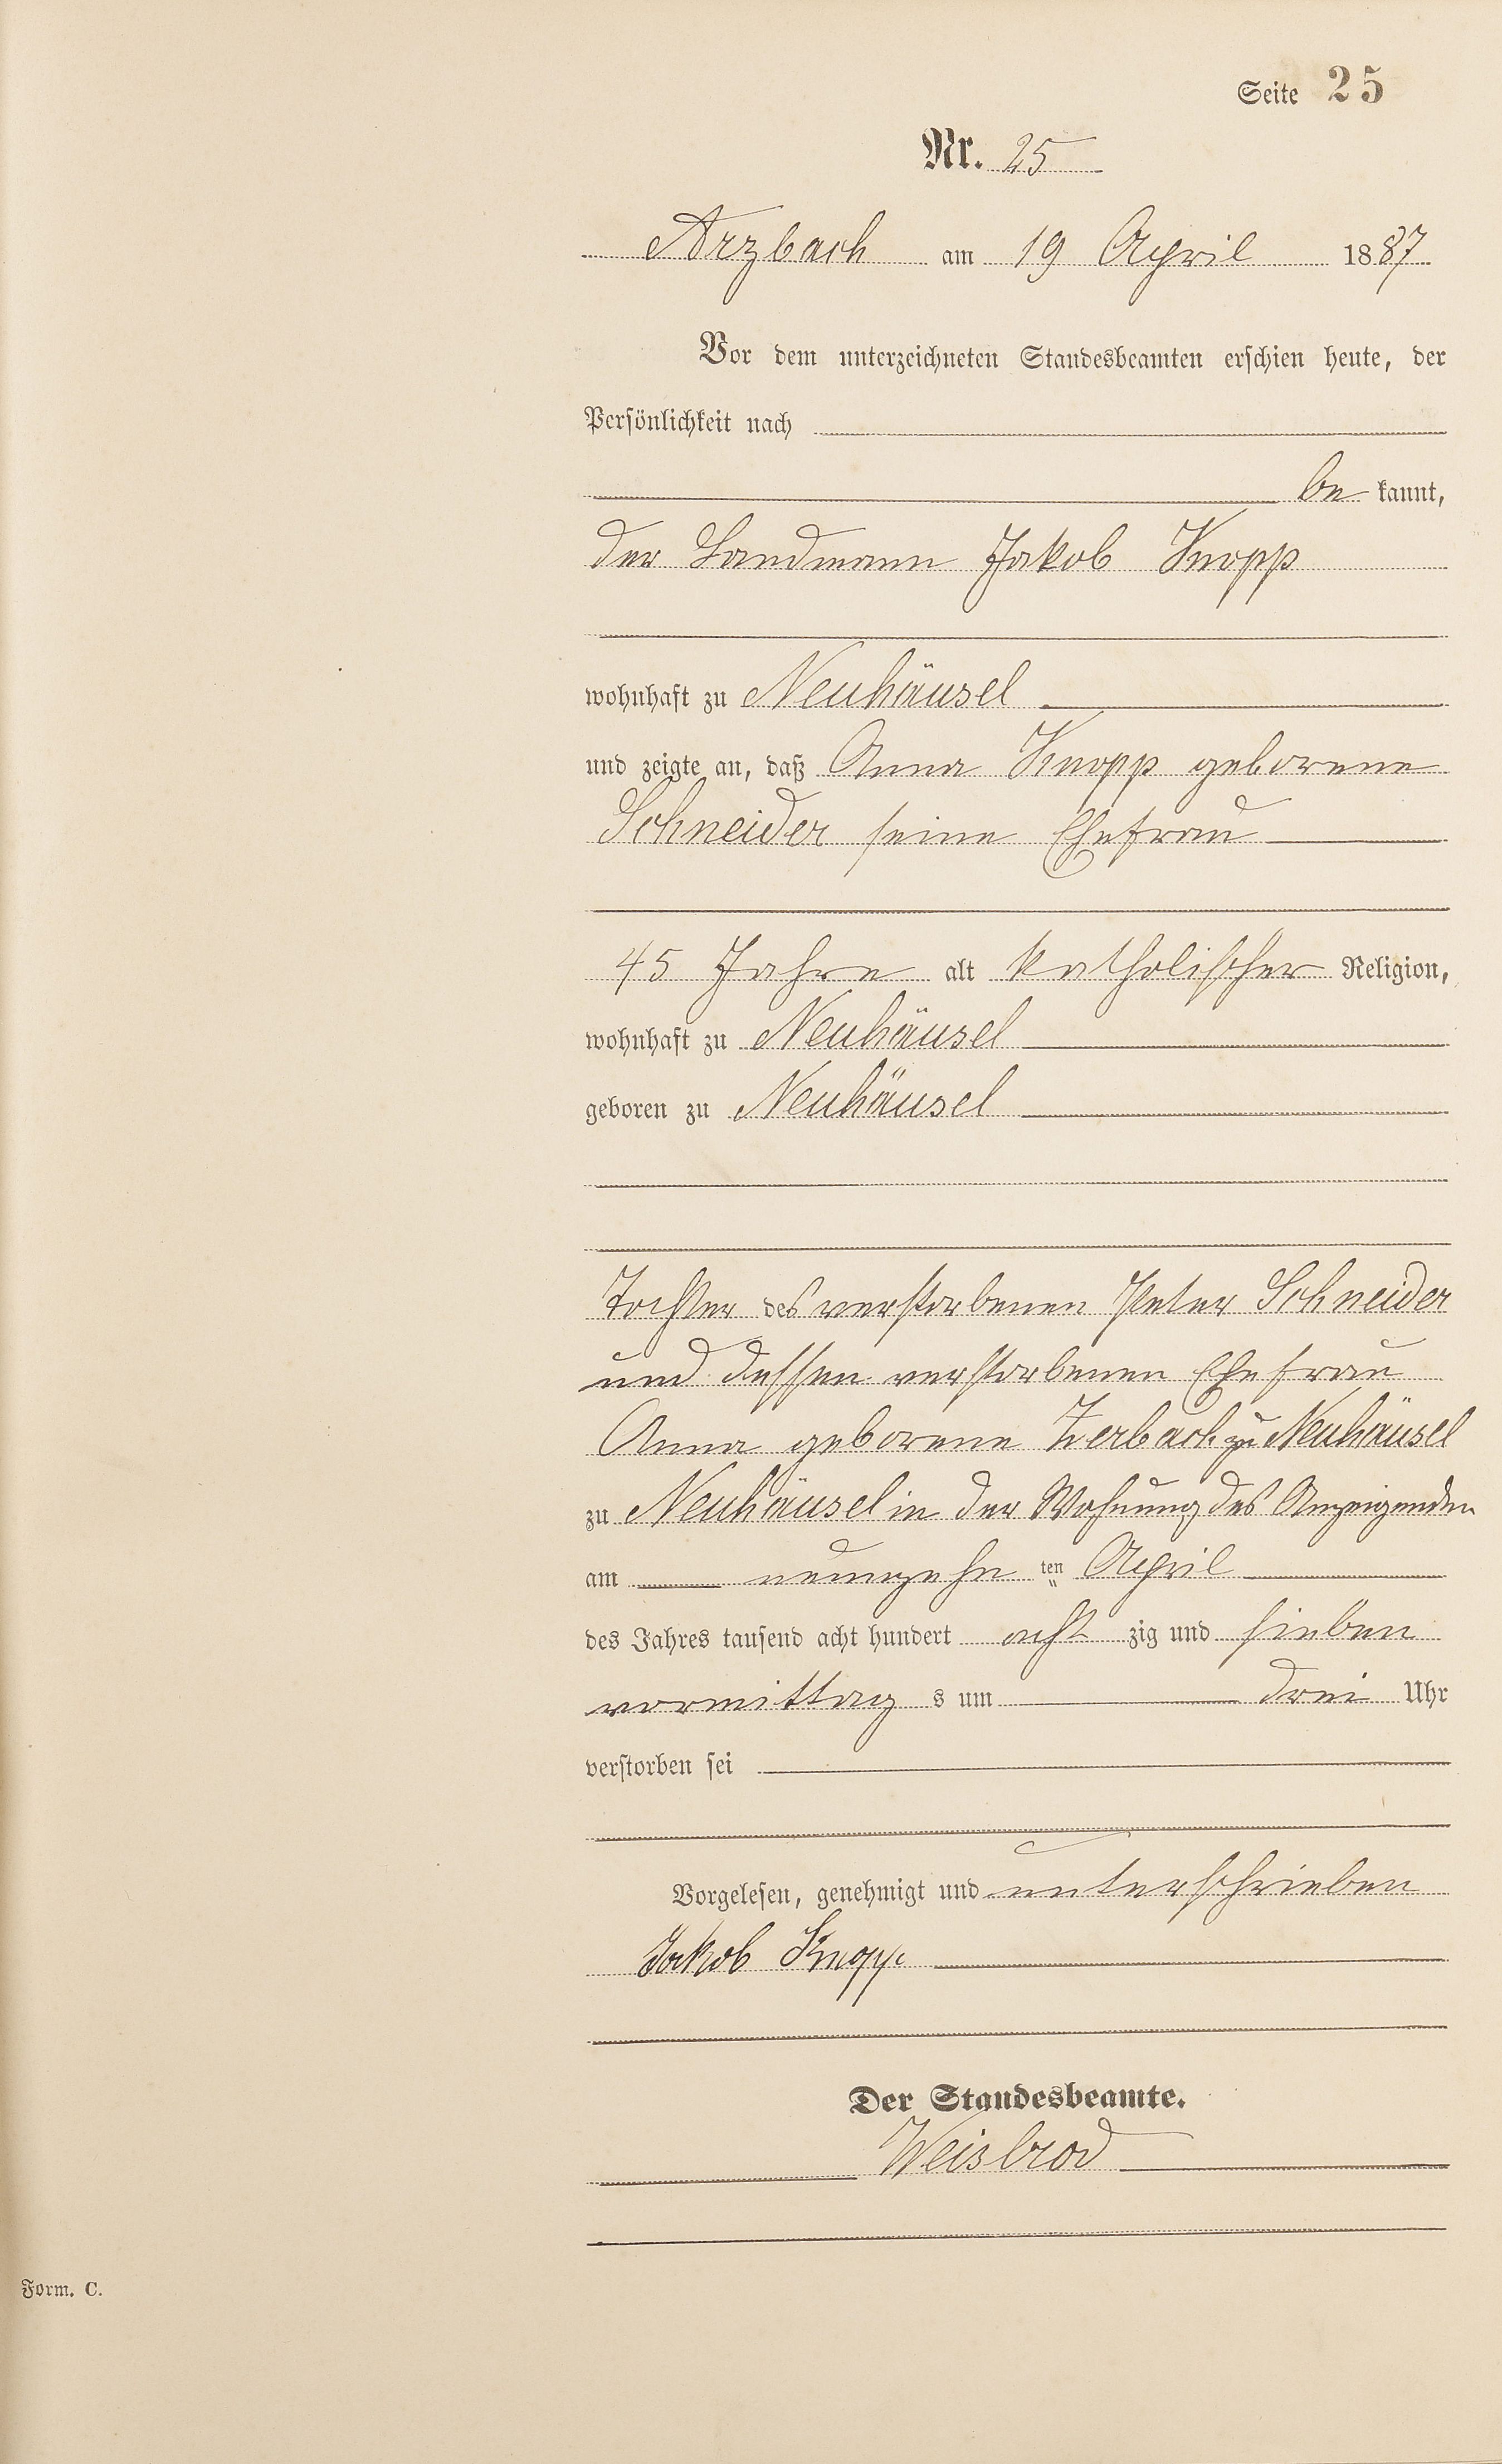 Seite 25
Nr. 25
Arzbach am 19 April 1887
Vor dem unterzeichneten Standesbeamten erschien heute, der
Persönlichkeit nach
be kannt,
der Landmann Jakob Knopp
wohnhaft zu Neuhäusel
und zeigte an, daß Anna Knopp geborene
Schneider seine Ehefrau
45 Jahre alt katholischer Religion,
wohnhaft zu Neuhäusel
geboren zu Neuhäusel
Tochter des verstorbenen Peter Schneider
und dessen verstorbenen Ehefrau
Anna geborene Zerbach zu Neuhäusel
zu Neuhäusel in der Wohnung des Anzeigenden
am neunzehn ten April
des Jahres tausend acht hundert acht zig und sieben
vormittag s um drei Uhr
verstorben sei
Vorgelesen, genehmigt und unterschrieben
Jakob Knopp
Der Standesbeamte.
Weisbrod
Form. C.